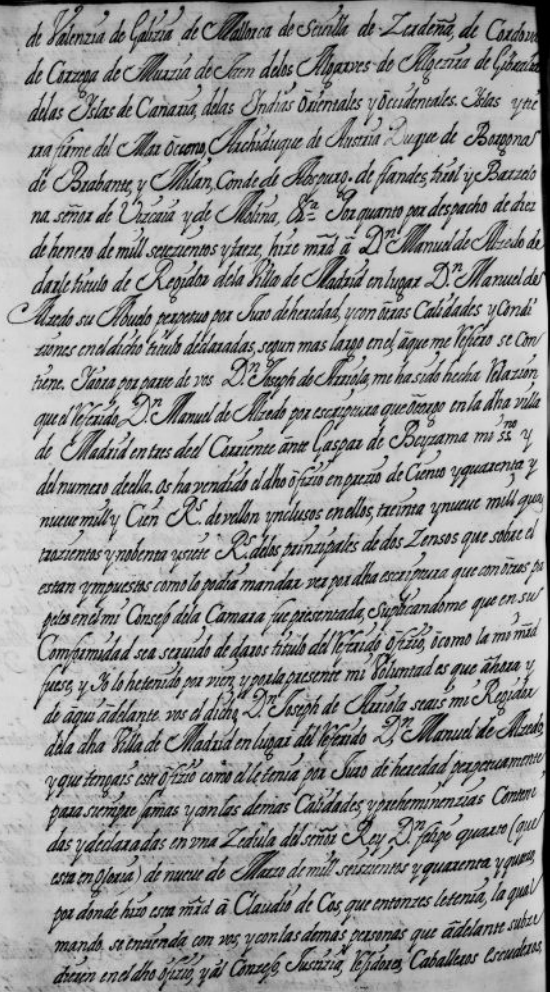 de Valenzia de Galizia de Mallorca de Seuilla de Zerdeña, de Cordoua
de Corzega de Murzia de Jaen delos Algarves de Algezira de Gibraltar
delas Yslas de Canaria, delas Yndias òrientales y òccidentales. Yslas y tie
rra firme del Mar òceono, Archiduque de Austria Duque de Borgoña
de Brabante, y Milan, Conde de Abspurg. de flandes, tirol y Barzelo
na, señor de Vizcaia y de Molina, &ª Por quanto por despacho de diez
de henero de mill setezientos y treze, hize mrd à Dn Manuel de Alzedo de
darle titulo de Regidor dela Villa de Madrid en lugar Dn Manuel de
Alzedo su Abuelo perpetuo por Juro de heredad, y con òtras Calidades y Condi
ziones en el dicho titulo declaradas, segun mas largo en el, àque me Refiero se con
tiene. Yaora por parte de vos Dn Joseph de Arriola, me ha sido hecha Relazion
que el Referido, Dn Manuel de Alzedo por escriptura que òtorgo en la dha villa
de Madrid en tres deel Corriente ànte Gaspar de Beyzama mi ssno y
del numero deella. os ha vendido el dho òfizio en prezio de Ciento y quarenta y
nueue mill y Cien Rs. de vellon ynclusos en ellos, treinta y nueue mill qua
trozientos y nobenta y siete Rs. delos prinzipales de dos Zensos que sobre el
estan ympuestos como lo podia mandar ver por dha escriptura que con òtros pa
peles en el mi Consejo dela Camara fue presentada, Suplicandome que en su
Comformidad sea seruido de daros titulo del Referido òfizio, òcomo la mi mrd
fuese, y Yo lo he tenido por vien, y por la presente mi Voluntad es que àhora y
de àqui àdelante vos el dicho Dn Joseph de Arriola seais mi Regidor
dela dha Villa de Madrid en lugar del Referido Dn Manuel de Alzedo,
y que tengais este òfizio como el le tenia por Juro de heredad perpetuamente
para siempre jamas y con las demas Calidades, y preheminenzias Conteni
das y declaradas en vna Zedula del señor Rey Dn felipe quarto (que
esta en gloria) de nueue de Marzo de mill seiszientos y quarenta y quatro,
por donde hizo esta mrd à Claudio de Cos, que entonzes le tenia, la qual
mando se entienda con vos, y con las demas personas que àdelante subze
dieren en el dho òfizio, y àl Conzejo, Justizia, Rejidores, Caballeros escuderos,